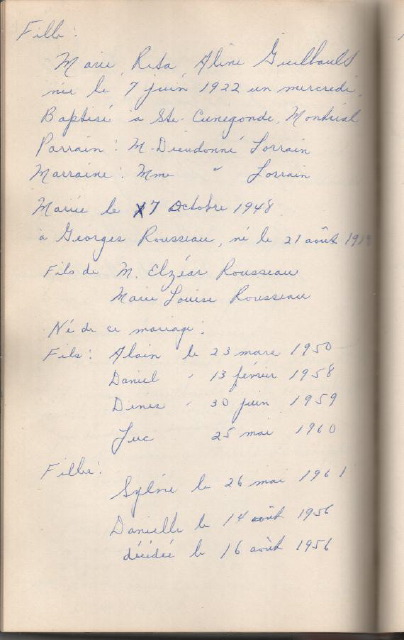 Fille:
Marie, Rita, Aline Guilbault
née le 7 juin 1922 un mercredi
Baptisé à Ste-Cunegonde, Montréal
Parrain: M. Dieudonné Lorrain
Marraine: Mme " Lorrain
Mariée le 7 Octobre 1948
à Georges Rousseau, né le 21 août
Fils de M. Elzéar Rousseau
Marie Louise Rousseau
Né de ce mariage:
Fils: Alain le 23 mars 1950
Daniel " 13 février 1958
Denis " 30 juin 1959
Luc 25 mai 1960
Fille:
Sylvie le 26 mai 1961
Danielle le 14 août 1956
décédée le 16 août 1956